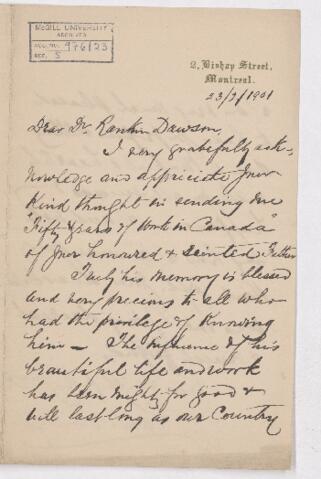 McGILL UNIVERSITY
ARCHIVES
ACC. NO. 976/23
REF. 5
2, Bishop Street,
Montreal.
23/7/1901
Dear Dr. Rankin Dawson,
I very gratefully ack-
nowledge and appreciate your
kind thought in sending me
"Fifty Years of Work in Canada"
of your honoured & sainted Father
Truly his memory is blessed
and very precious to all who
had the privilege of knowing
him — The influence of his
beautiful life and work
has been mighty for good &
will last long as our Country